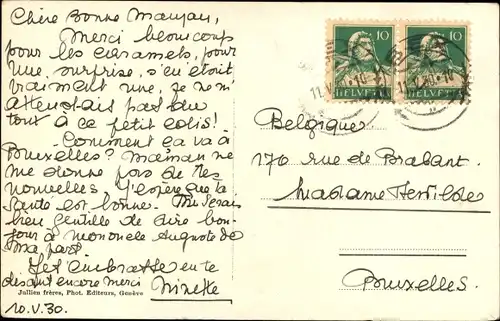 Chère Bonne Maman,
Merci beaucoup
pour les caramels, pour
une surprise, s'en était
vraiment une, je ne m'
attendais pas du
tout à ce petit colis!
Comment ça va à
Bruxelles? Maman ne
me donne pas de tes
nouvelles. J'espère que ta
santé est bonne. Tu serais
bien gentille de dire bon-
jour à mononcle Auguste de
ma part.
Je t'embrasse en te
disant encore merci
Ninette
Jullien frères, Phot. Editeurs, Genève
10.V.30.
10 10
HELVETIA HELVETIA
Belgique
170 rue de Brabant.
Madame
Bruxelles.